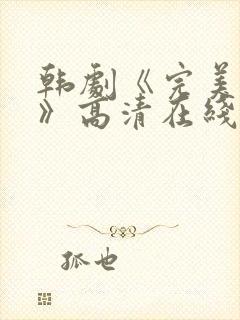 韩剧《完美
》高清在线
狐也